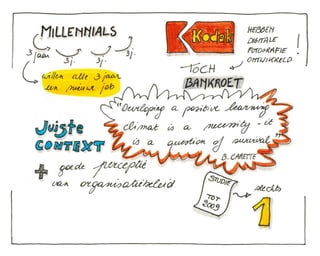 MILLENNIALS
3 jaar 3j. 3j. 3j.
willen alle 3 jaar
een nieuw job
Kodak
HEBBEN
DIGITALE
FOTOGRAFIE
ONTWIKKELD !
TOCH
BANKROET
"Developing a positive learning
climat is a necessity - it
is a question of survival"
B. CARETTE
Juiste
CONTEXT
+ goede perceptie
van organisatiebeleid
STUDIE
TOT
2009
slechts
1